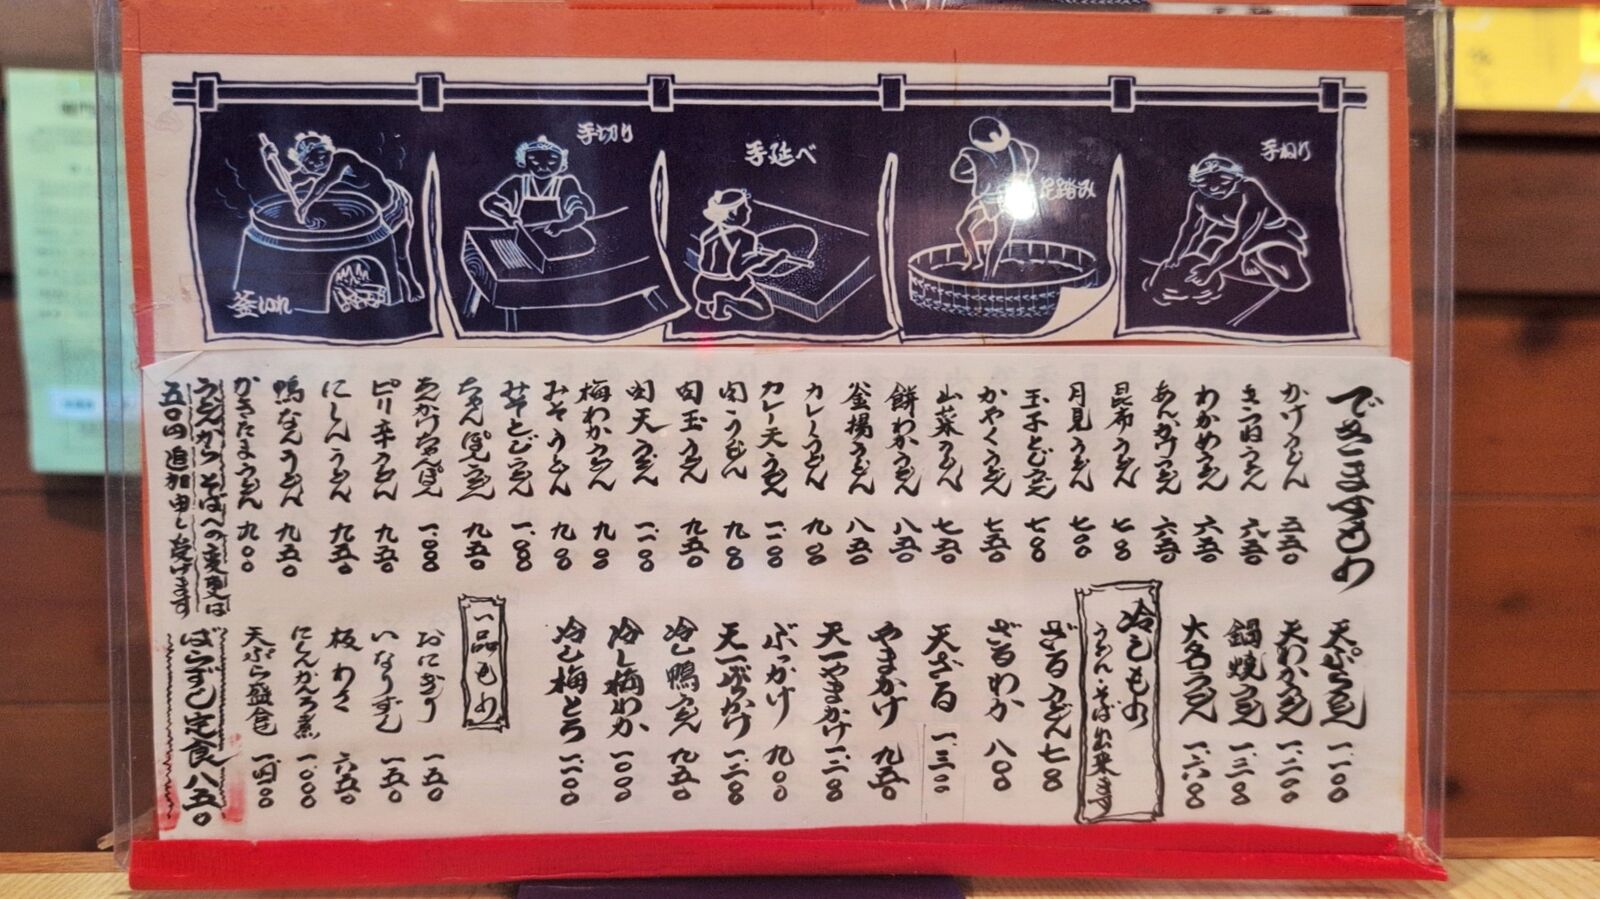 手ねり
足踏み
手延べ
手切り
釜いれ
できますもの
かけうどん 五五〇
きつねうどん 六五〇
わかめうどん 六五〇
あんかけうどん 六五〇
昆布うどん 七〇〇
月見うどん 七〇〇
玉子とじうどん 七〇〇
かやくうどん 七五〇
山菜うどん 七五〇
餅わかうどん 八五〇
釜揚うどん 八五〇
カレーうどん 九〇〇
カレー天うどん 一、二〇〇
肉うどん 九〇〇
肉玉うどん 九五〇
肉天うどん 一、二〇〇
梅わかうどん 九〇〇
みそうどん 九〇〇
みそとじうどん 一、〇〇〇
ちゃんぽんうどん 九五〇
あんかけちゃんぽん 一、〇〇〇
ピリ辛うどん 九五〇
にしんうどん 九五〇
鴨なんうどん 九五〇
かきたまうどん 九〇〇
うどんからそばへの変更は
五〇円追加申し受けます
天ぷらうどん 一、一〇〇
天わかうどん 一、二〇〇
鍋焼うどん 一、三〇〇
大名うどん 一、六〇〇
冷しもの
うどん・そば出来ます
ざるうどん 七〇〇
ざるわか 八〇〇
天ざる 一、三〇〇
やまかけ 九五〇
天一やまかけ 一、二〇〇
ぶっかけ 九〇〇
天一ぶっかけ 一、二〇〇
冷し鴨うどん 九五〇
冷し梅わか 一、〇〇〇
冷し梅とろ 一、一〇〇
一品もの
おにぎり 一五〇
いなりずし 一五〇
板わさ 六五〇
にしんかんろ煮 一、〇〇〇
天ぷら盛合 一、四〇〇
ばらずし定食 八五〇